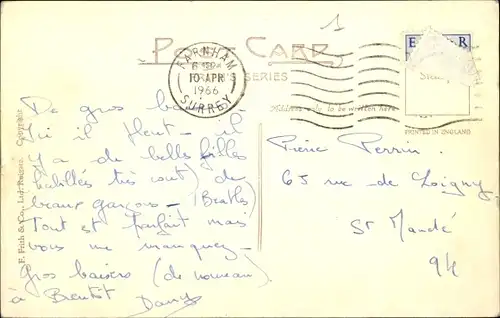 1
POST CARD
FRITH'S SERIES
FARNHAM
10 APR
1966
SURREY
E R
Stamp
Address only to be written here
PRINTED IN ENGLAND
F. Frith & Co., Ltd. Reigate. Copyright.
De gros bai
Ici il pleut - il
y a de belles filles
(habillés très court) de
beaux garçons - (Beatles)
Tout est parfait mais
vous me manquez -
Gros baisers (de nouveau)
à Bientôt Dany
Pierre Perrin.
65 rue de Loigny
St Mandé
94